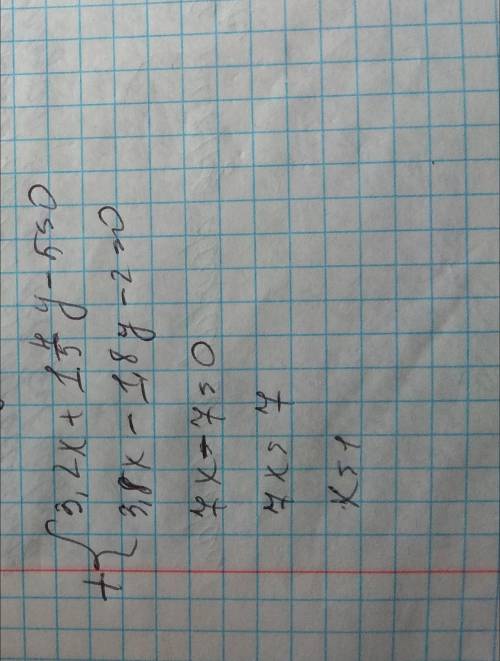 + { 3,2x + 1 4/5 y - 5 = 0
3,8x - 1,8y - 2 = 0
7x - 7 = 0
7x = 7
x = 1